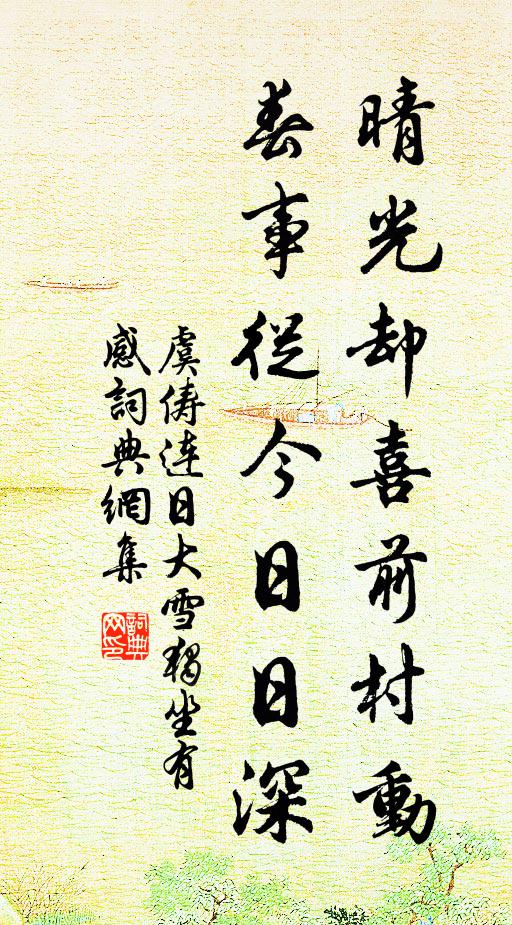 晴光却喜前村動
春事從今日日深
虞儔連日大雪獨坐有
感詞典網集
詞典
网印